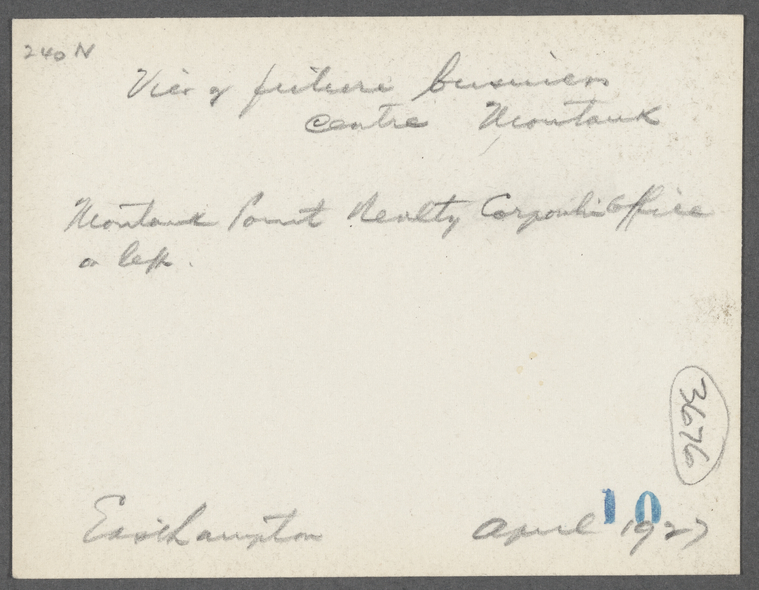 240 N
View of future business
Centre Montauk
Montauk Point Realty Office
on left.
3676
10
Easthampton April 1927